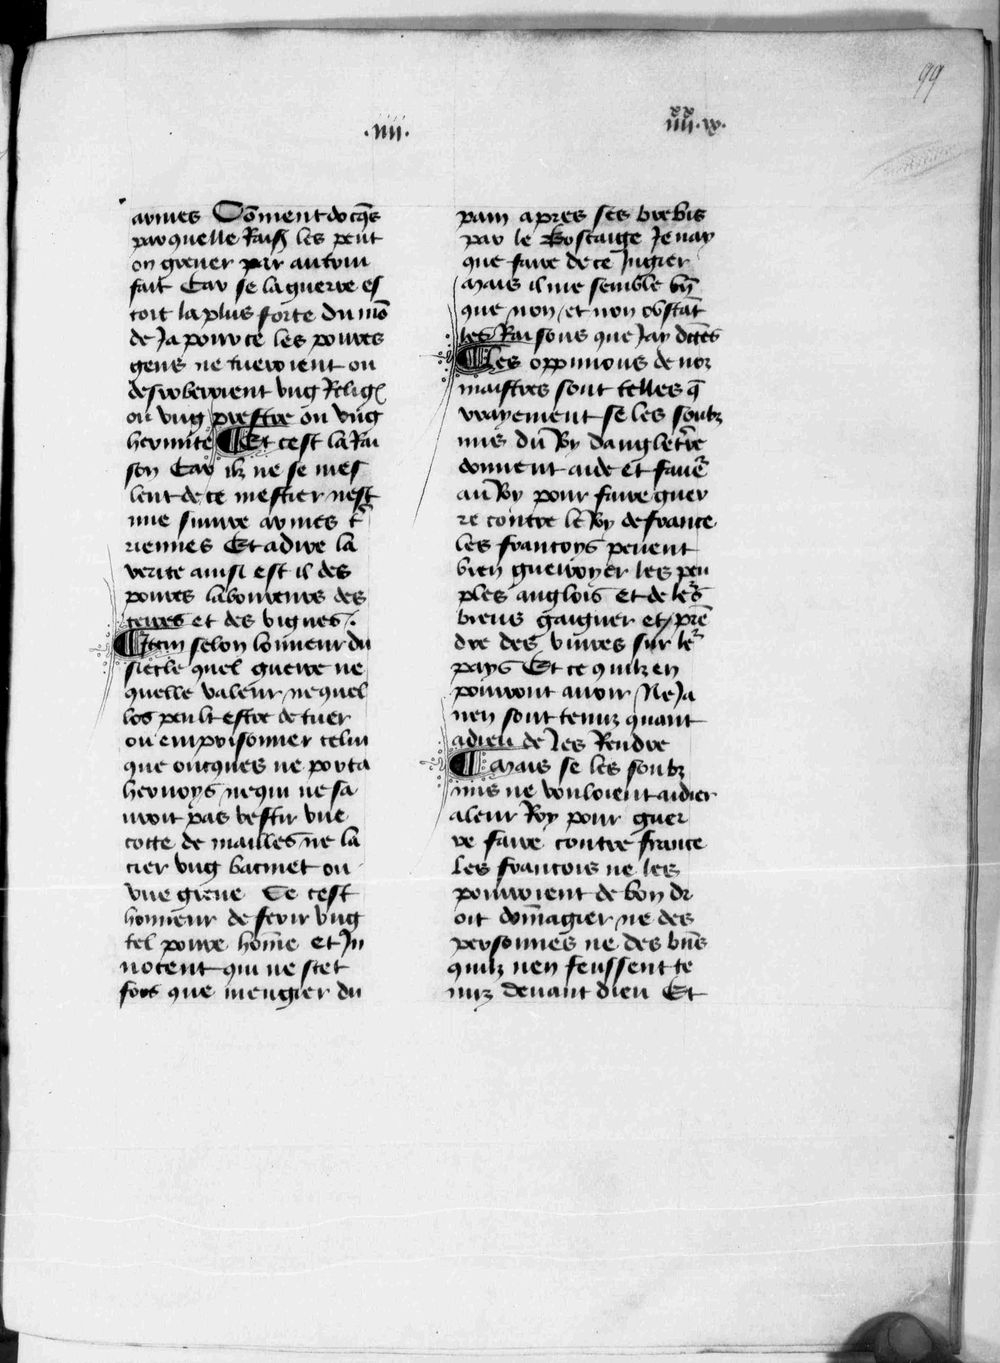 99
.iiii.
xx xx
iiii.xv.
armes Cōment docq̄s
par quelle Raisō les peut
on grever par autrui
fait Car se la guerre es
toit la plus forte du mō
de Ja pour ce les povres
gens ne tueroient ou
desroberoient ung Relig̃
ou ung prestre ou ung
hermite ¶ Et cest la Rai
son Car ilz ne se mes
lent de ce mestier nest
mie suivre armes t̃
riennes Et a dire la
verite ainsi est il des
povres laboureurs des
terres et des vignes.
¶ Item selon lonneur du
siecle quel guerre ne
quelle valeur ne quel
los peult estre de tuer
ou emprisonner celui
que oncques ne porta
hernoys ne qui ne sa
uroit pas vestir une
cotte de mailles ne la
cier ung bacinet ou
une greve Ce cest
honneur de ferir ung
tel povre home et In
nocent qui ne scet
fors que mengier du
pain apres ses brebis
par le Boscaige Je nay
que faire de ce Jugier
mais il me semble bñ
que non et non obstāt
les Raisons que Jay dc̄tes
¶ Les oppinions de noz
maistres sont telles q̄
vrayement se les soubz
mis du Roy dangletr̃e
donnent aide et faver̃
au Roy pour faire guer
re contre le Roy de france
les francoys pevent
bien guerroyer les peu
ples anglois et de lr̃s
biens gaigner et prē
dre des vivres sur lr̃
pays Et ce quilz en
pourront avoir Ne Ja
nen sont tenuz quant
a dieu de les Rendre
¶ Mais se les soubz
mis ne vouloient aidier
a leur Roy pour guer
re faire contre france
les francois ne les
pourroient de bon dr
oit dom̄agier ne des
personnes ne des bn̄s
quilz nen feussent te
nuz devant dieu Et